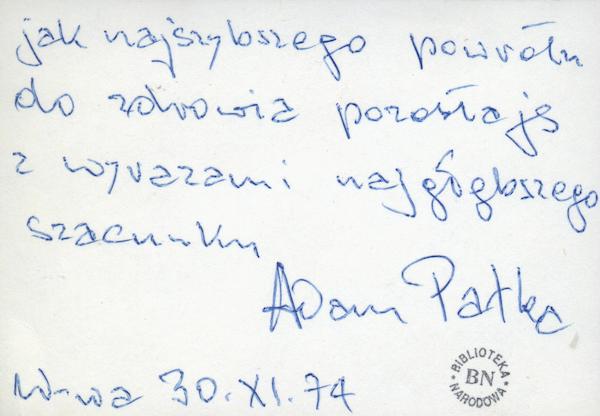 jak najszybszego powrotu
do zdrowia pozostaję
z wyrazami najgłębszego
szacunku
Adam Pałka
W-wa 30.XI.74
BIBLIOTEKA
BN
NARODOWA